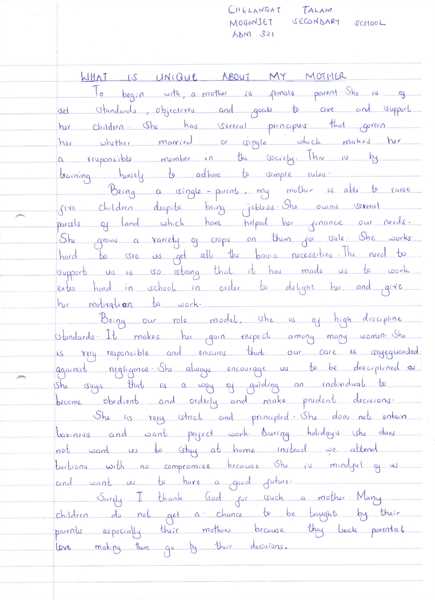 CHELLANGAT TALAM
MOGONJET SECONDARY SCHOOL
ADM 321
WHAT IS UNIQUE ABOUT MY MOTHER
To begin with, a mother is female parent. She is of
set standards, objectives and goals to care and support
her children. She has several principles that govern
her whether married or single which makes her
a responsible member in the society. This is by
training to adhere to simple rules.
Being a single-parent, my mother is able to raise
five children despite being jobless. She owns several
parcels of land which have helped her finance our needs.
She grows a variety of crops on them for sale. She works
hard to see us get all the basic necessities. The need to
support us is so strong that it has made us to work
extra hard in school in order to delight her and give
her motivation to work.
Being our role model, she is of high discipline
standards. It makes her gain respect among many women. She
is very responsible and ensures that our care is safeguarded
against negligence. She always encourage us to be desciplined as
she says that is a way of guiding an individual to
become obedient and orderly and make prudent decisions.
She is very strict and principled. She does not entertain
laziness and want perfect work. During holidays she does
not want us to stay at home instead we attend
tuitions with no compromise because she is mindful of us
and want us to have a good future.
Surely I thank God for such a mother. Many
children do not get a chance to be taught by their
parents especially their mothers because they lack parental
love making them go by their decisions.